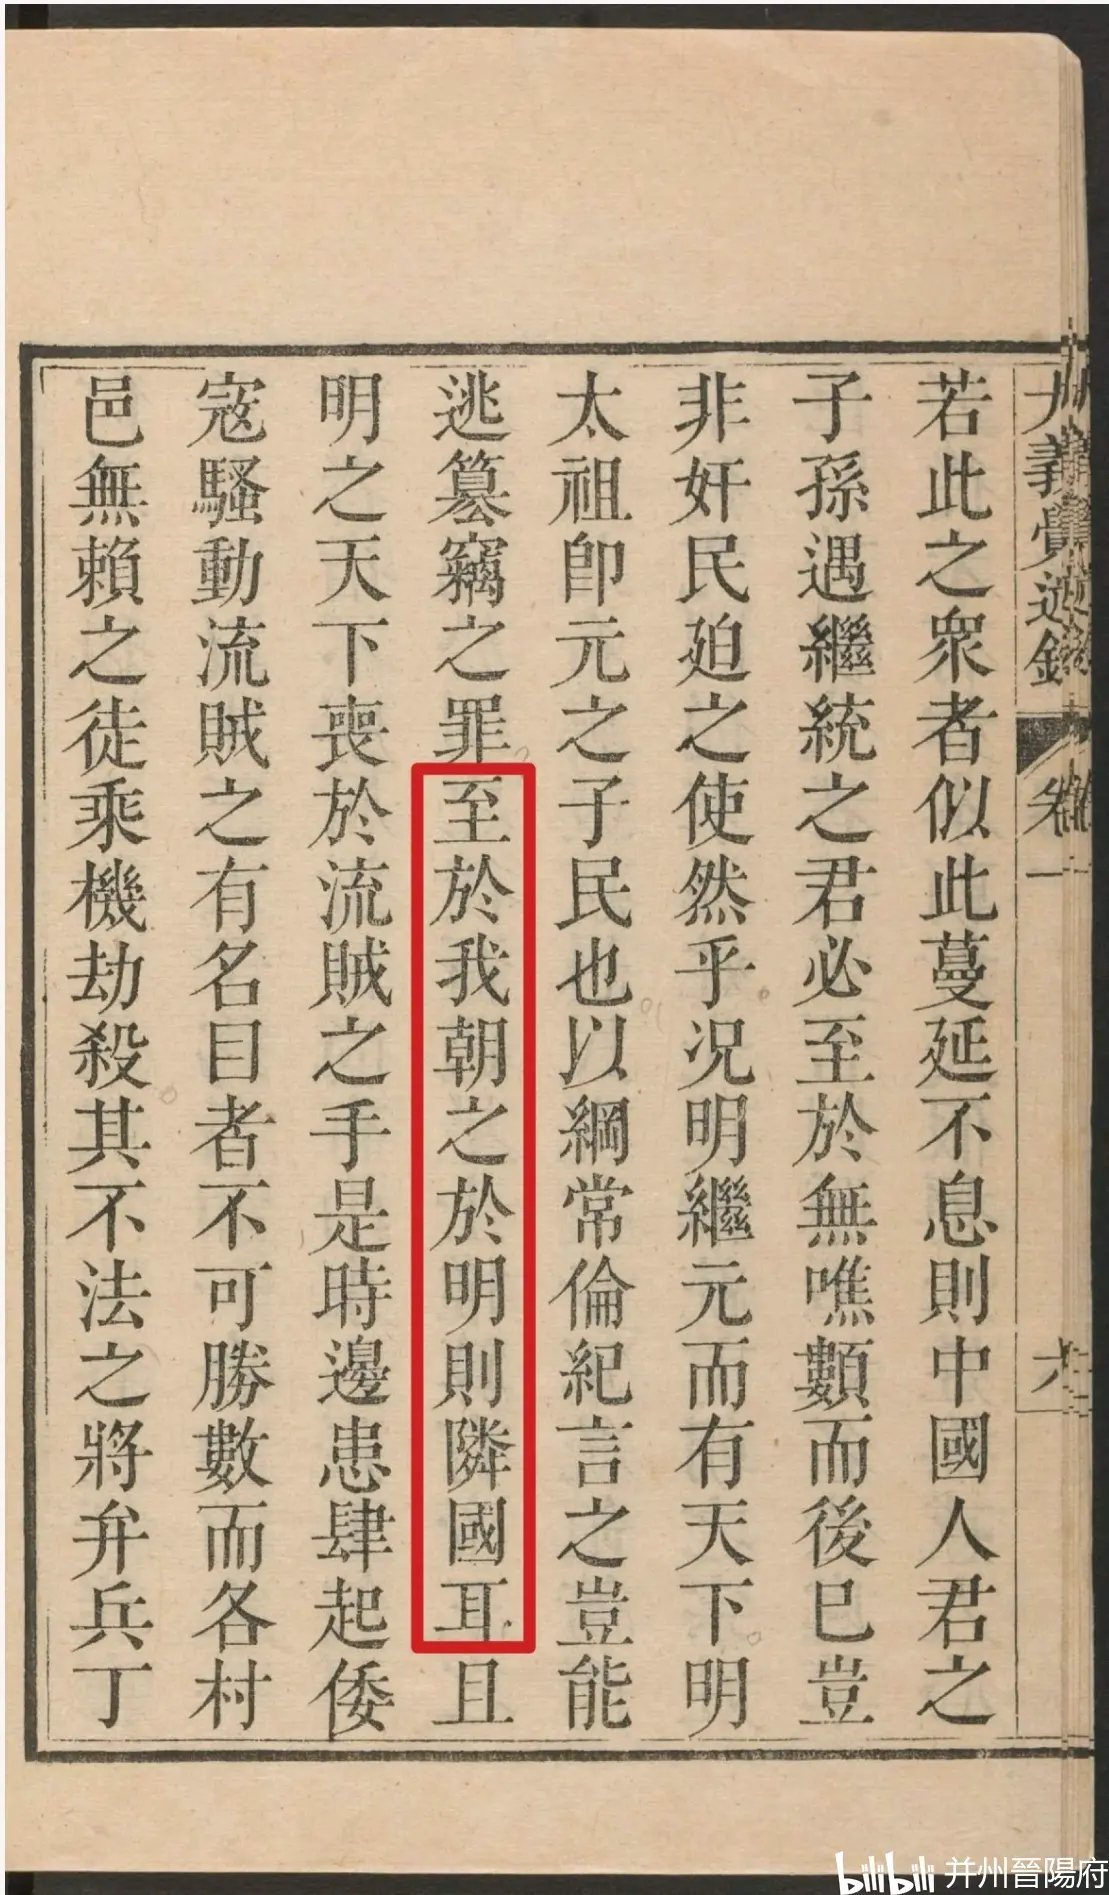 大義覺迷錄 卷一 六
若此之眾者似此蔓延不息則中國人君之
子孫遇繼統之君必至於無噍類而後已豈
非奸民廹之使然乎况明繼元而有天下明
太祖卽元之子民也以綱常倫紀言之豈能
逃篡竊之罪至於我朝之於明則隣國耳且
明之天下喪於流賊之手是時邊患肆起倭
寇騷動流賊之有名目者不可勝數而各村
邑無賴之徒乘機劫殺其不法之將弁兵丁
bilibili 并州晉陽府